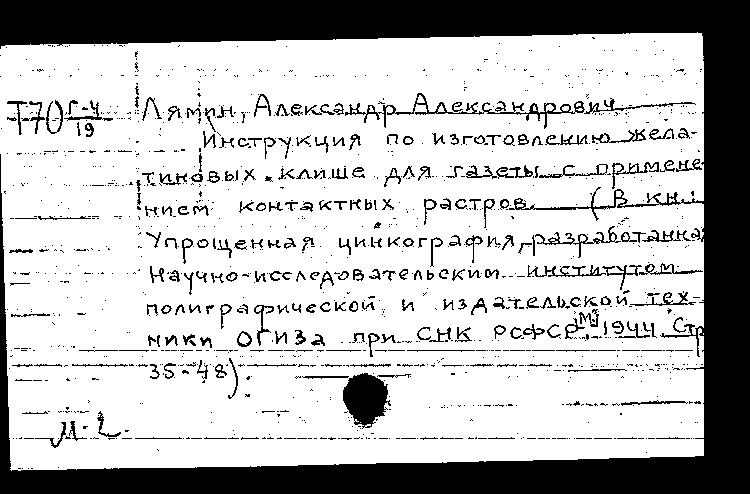 Т70 Г-4/19
Лямин, Александр Александрович
Инструкция по изготовлению жела-
тиновых клише для газеты с примене-
нием контактных растров. (В кн.:
Упрощенная цинкография, разработанная
Научно-исследовательским институтом
полиграфической и издательской тех-
ники ОГИЗа при СНК РСФСР, [М.] 1944. Стр
35-48).
М-2.